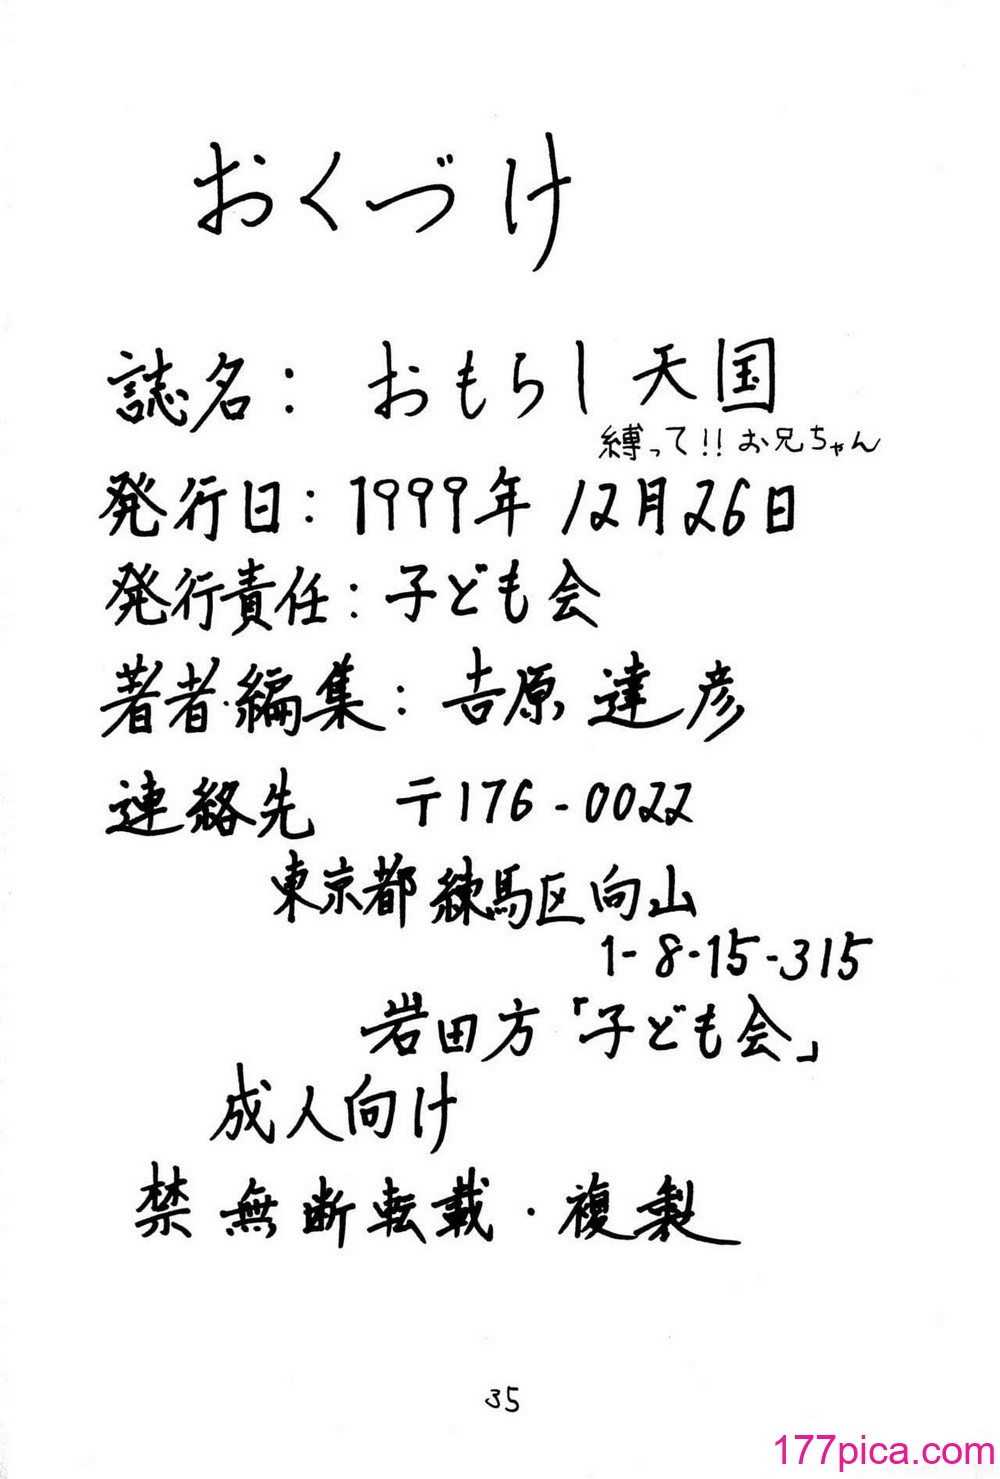 おくづけ
誌名: おもらし天国
縛って!! お兄ちゃん
発行日: 1999年 12月26日
発行責任: 子ども会
著者・編集: 吉原 達彦
連絡先 〒176-0022
東京都練馬区向山
1-8-15-315
岩田方「子ども会」
成人向け
禁無断転載・複製
35
177pica.com